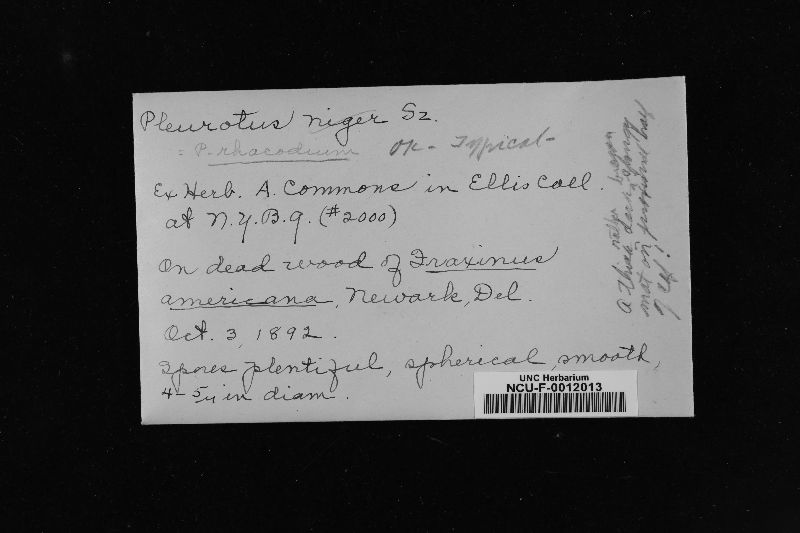 Pleurotus niger Sz.
= P. rhacodium OK - Typical -
Ex Herb. A. Commons in Ellis Coll.
at N.Y.B.g. (#2000)
On dead wood of Fraxinus
americana, Newark, Del.
Oct. 3, 1892.
Spores plentiful, spherical, smooth,
4-5µ in diam.
UNC Herbarium
NCU-F-0012013
A thin
mat on proximal half
of cap!